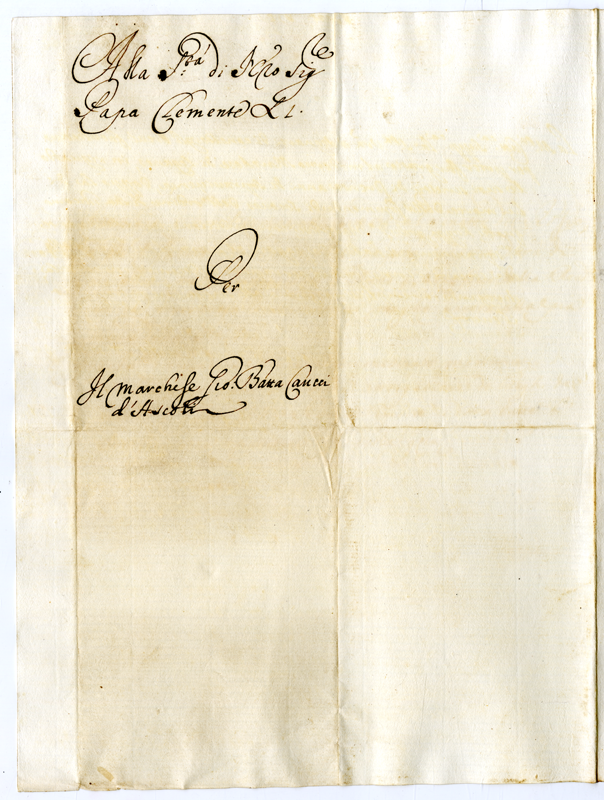 Alla S.tà di N̄ro Sig.re
Papa Clemente XI.
Per
Il Marchese Gio: Batta Caucci
d'Ascoli